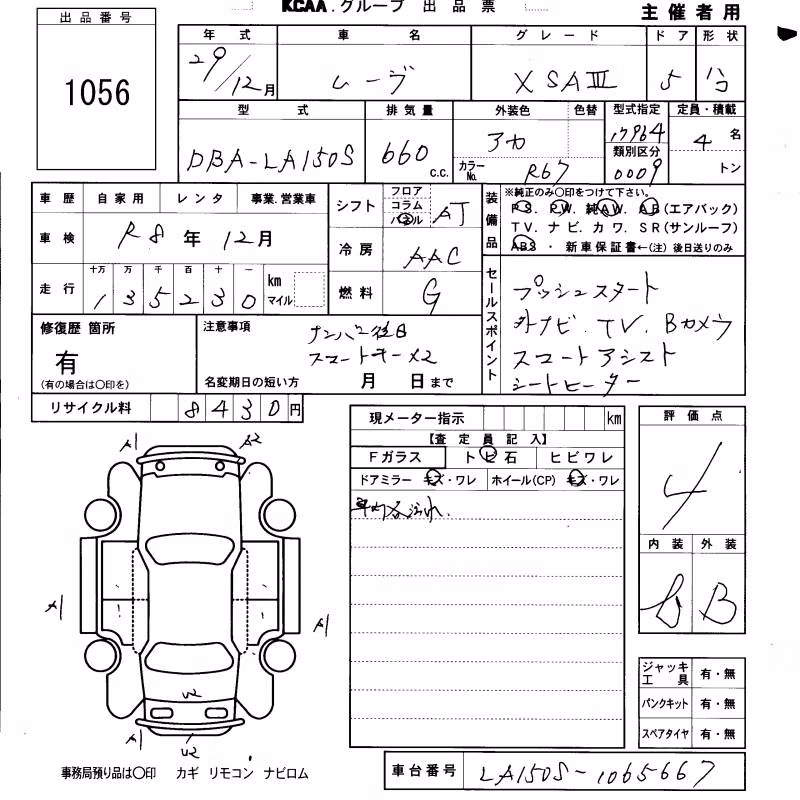 KCAA.グループ 出品票
主催者用
出品番号
1056
年式 車名 グレード ドア 形状
29/12月 ムーヴ XSAⅢ 5 ハコ
型式 排気量 外装色 色替 型式指定 定員・積載
DBA-LA150S 660 c.c. アカ 17964 4名
カラーNo. R67 類別区分 0009 トン
車歴 自家用 レンタ 事業.営業車
車検 R8年12月
走行 十万 万 千 百 十 一 km マイル
135230
シフト フロア コラム パネル AT
冷房 AAC
燃料 G
装備品 ※純正のみ〇印をつけて下さい。
PS. PW. 純AW. AB(エアバック)
TV. ナビ. カワ. SR(サンルーフ)
ABS ・ 新車保証書←(注)後日送りのみ
セールスポイント
プッシュスタート
外ナビ. TV. Bカメラ
スマートアシスト
シートヒーター
修復歴 箇所
有
(有の場合は〇印を)
注意事項
ナンバー後日
スマートキー×2
名変期日の短い方 月 日まで
リサイクル料 8430円
現メーター指示 km
【査定員記入】
Fガラス トビ石 ヒビワレ
ドアミラー キズ・ワレ ホイール(CP) キズ・ワレ
車内各汚れ.
評価点
4
内装 外装
B
A1 A2
A1
A1
U2
A1
U2
ジャッキ工具 有・無
パンクキット 有・無
スペアタイヤ 有・無
事務局預り品は〇印 カギ リモコン ナビロム
車台番号 LA150S-1065667